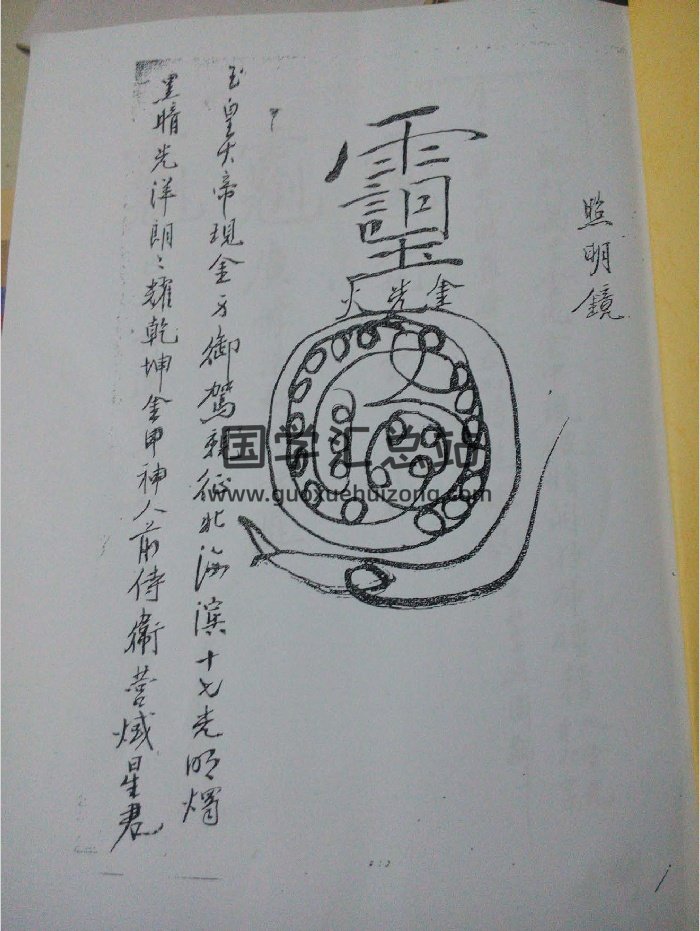 照明鏡
金光火
玉皇大帝現金御駕親征北海濱十七光明燭
黑暗光洋朗々耀乾坤金甲神人前侍衛营星君
国学汇总站
www.guoxuehuizong.com